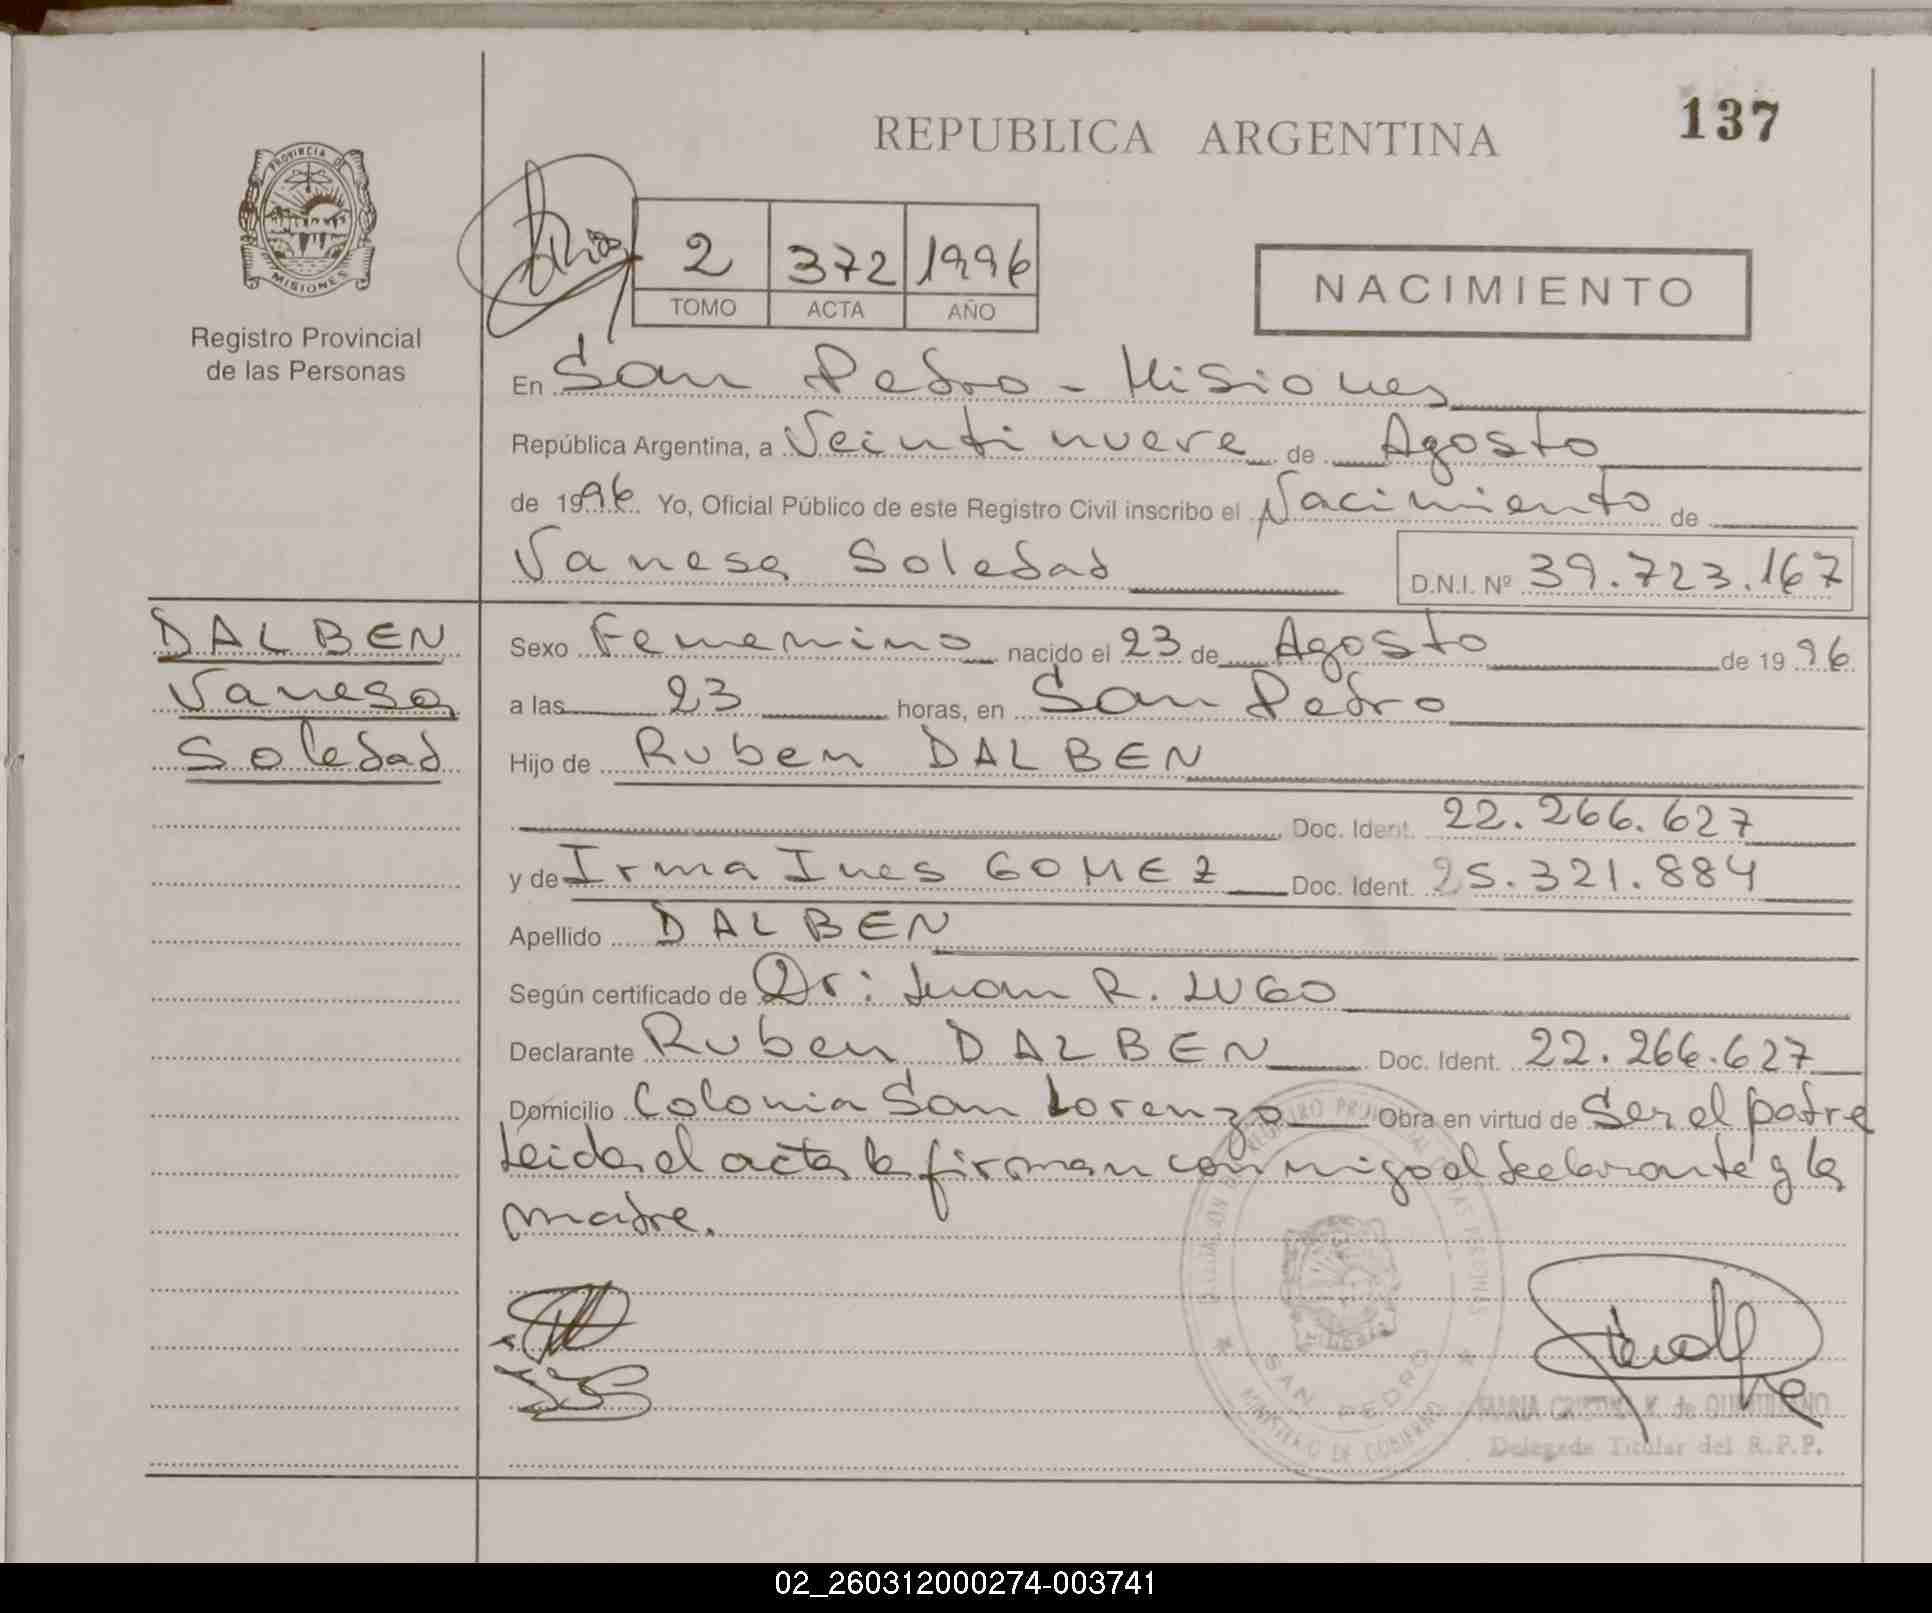 137
REPUBLICA ARGENTINA
PROVINCIA D
MISIONES
Registro Provincial
de las Personas
2 372 1996
TOMO ACTA AÑO
NACIMIENTO
En San Pedro - Misiones
República Argentina, a Veintinueve de Agosto
de 1996 Yo, Oficial Público de este Registro Civil inscribo el Nacimiento de
Vanesa Soledad D.N.I. Nº 39.723.167
DALBEN
Vanesa
Soledad
Sexo Femenino nacido el 23 de Agosto de 1996
a las 23 horas, en San Pedro
Hijo de Ruben DALBEN
Doc. Ident. 22.266.627
y de Irma Ines GOMEZ Doc. Ident. 25.321.884
Apellido DALBEN
Según certificado de Dr: Juan R. LUGO
Declarante Ruben DALBEN Doc. Ident. 22.266.627
Domicilio Colonia San Lorenzo Obra en virtud de Ser el padre
Leida el acta la firman conmigo el declarante y la
madre.
SAN PEDRO
MINISTERIO DE GOBIERNO
MARIA CRISTINA de
Delegada Titular del R.P.P.
02_260312000274-003741